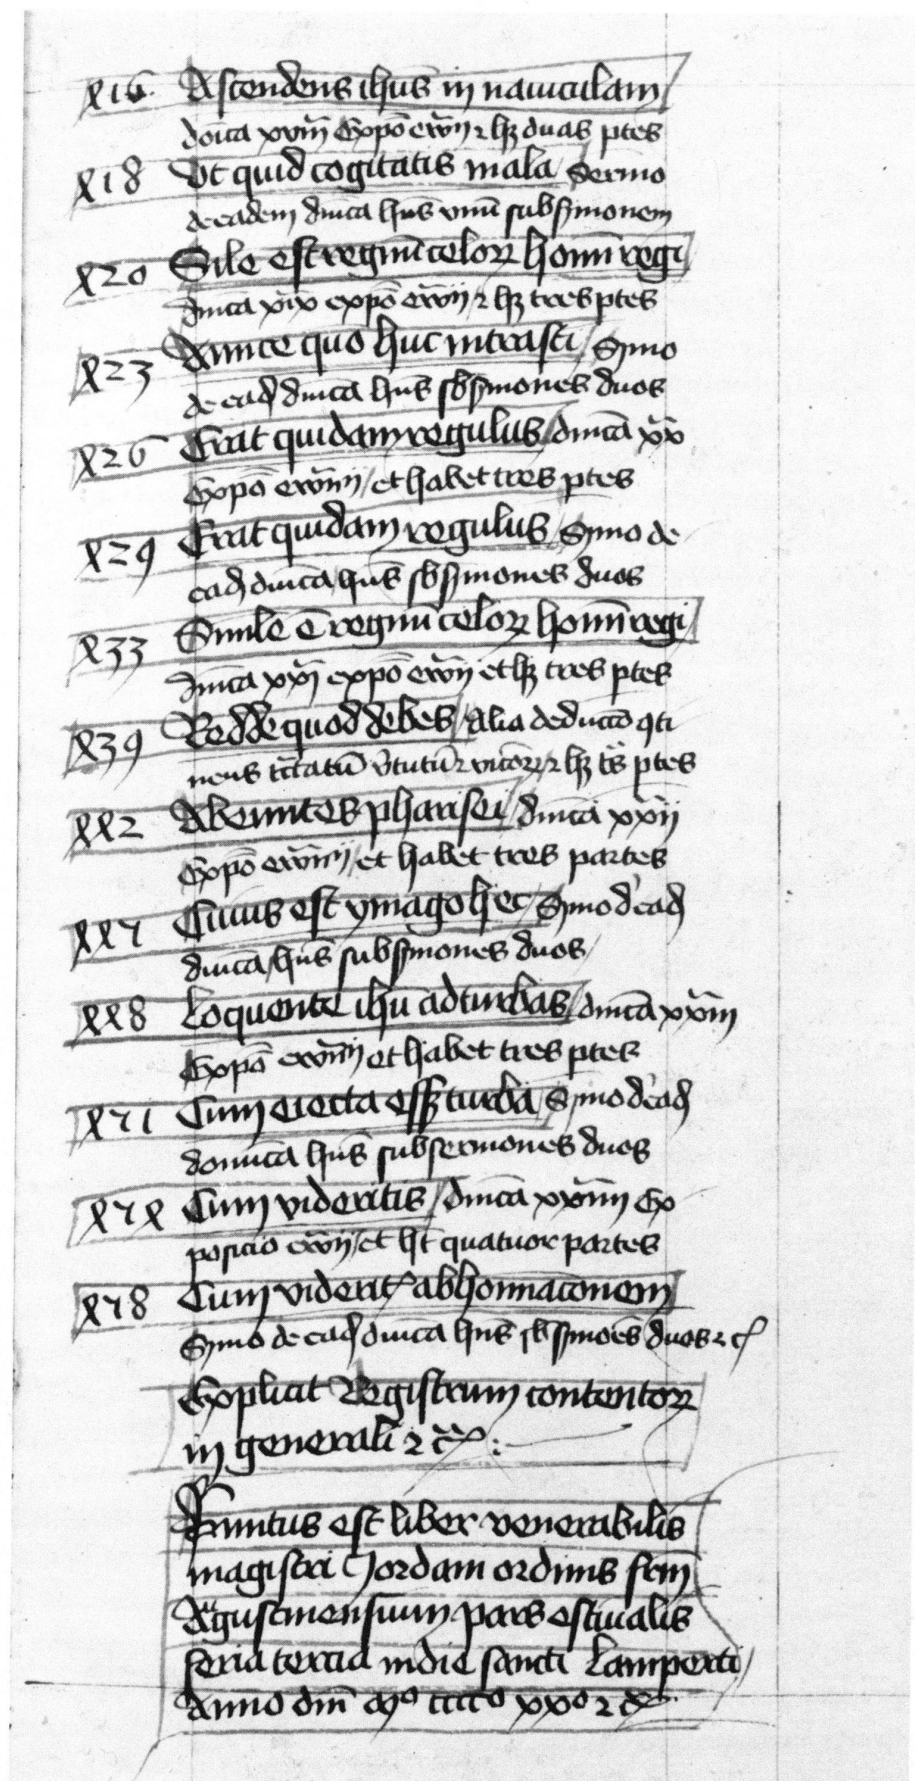 416 Ascendens ihūs in nauiculam
doīca xviīj Expō ewāij ⁊ hꝫ duas ptes
418 Ut quid cogitatis mala Sermo
de eadem dnīca hn̄s vnū subsmonem
420 Sīle est regnū celoꝝ homī regi
dnīca xix expō ewāij ⁊ hꝫ tres ptes
423 Amice quo huc intrasti Smo
de eadꝫ dnīca hn̄s sbsmones duos
426 Erat quidam regulus dnīca xx
Expō ewāij et habet tres ptes
429 Erat quidam regulus Smo de
eadꝫ dnīca hn̄s sbsmones duos
433 Simile ē regnū celoꝝ homī regi
dnīca xxj expō ewāij et hꝫ tres ptes
439 Redde quod debes alia deduccō ꝯti
nens tc̄tatū v̄tutū ⁊ vicioꝝ ⁊ hꝫ tˢ ptes
442 Abeuntes pharisei dnīca xxij
Expō ewāij et habet tres partes
445 Cuius est ymago hec Smo d' eadꝫ
dnīca hn̄s subsmones duos
448 Loquente ihū ad turbas dnīca xxiij
Expō ewāij et habet tres ptes
451 Cum eiecta essꝫ turba Smo d' eadꝫ
domīca hn̄s subsermones duos
454 Cum videritis dnīca xxiiij Ex
posicio ewāij et ht̄ quatuor partes
458 Cum videritꝭ abhominacōnem
Smo de eadꝫ dnīca hn̄s sbsmōes duos ⁊ cꝭ
Explicit Registrum contentoꝝ
in generali ⁊ cꝭ
Finitus est liber venerabilis
magistri Jordani ordinis frm̄
Agustinensium pars estiualis
feria tercia in die sancti Lamperti
Anno dnī Mº ccccº xxº ⁊ cꝭ